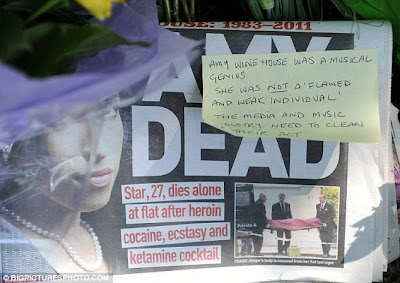 OUSE: 1983-2011
AMY
AMY WINE HOUSE WAS A MUSICAL
GENIUS
SHE WAS NOT A 'FLAWED
AND WEAK INDIVIDUAL'
THE MEDIA AND MUSIC
NEED TO CLEAN
THEIR ACT
DEAD
Star, 27, dies alone
at flat after heroin
cocaine, ecstasy and
ketamine cocktail
Private A
TRAGIC: Singer's body is removed from her flat last night
© BIGPICTURESPHOTO.COM